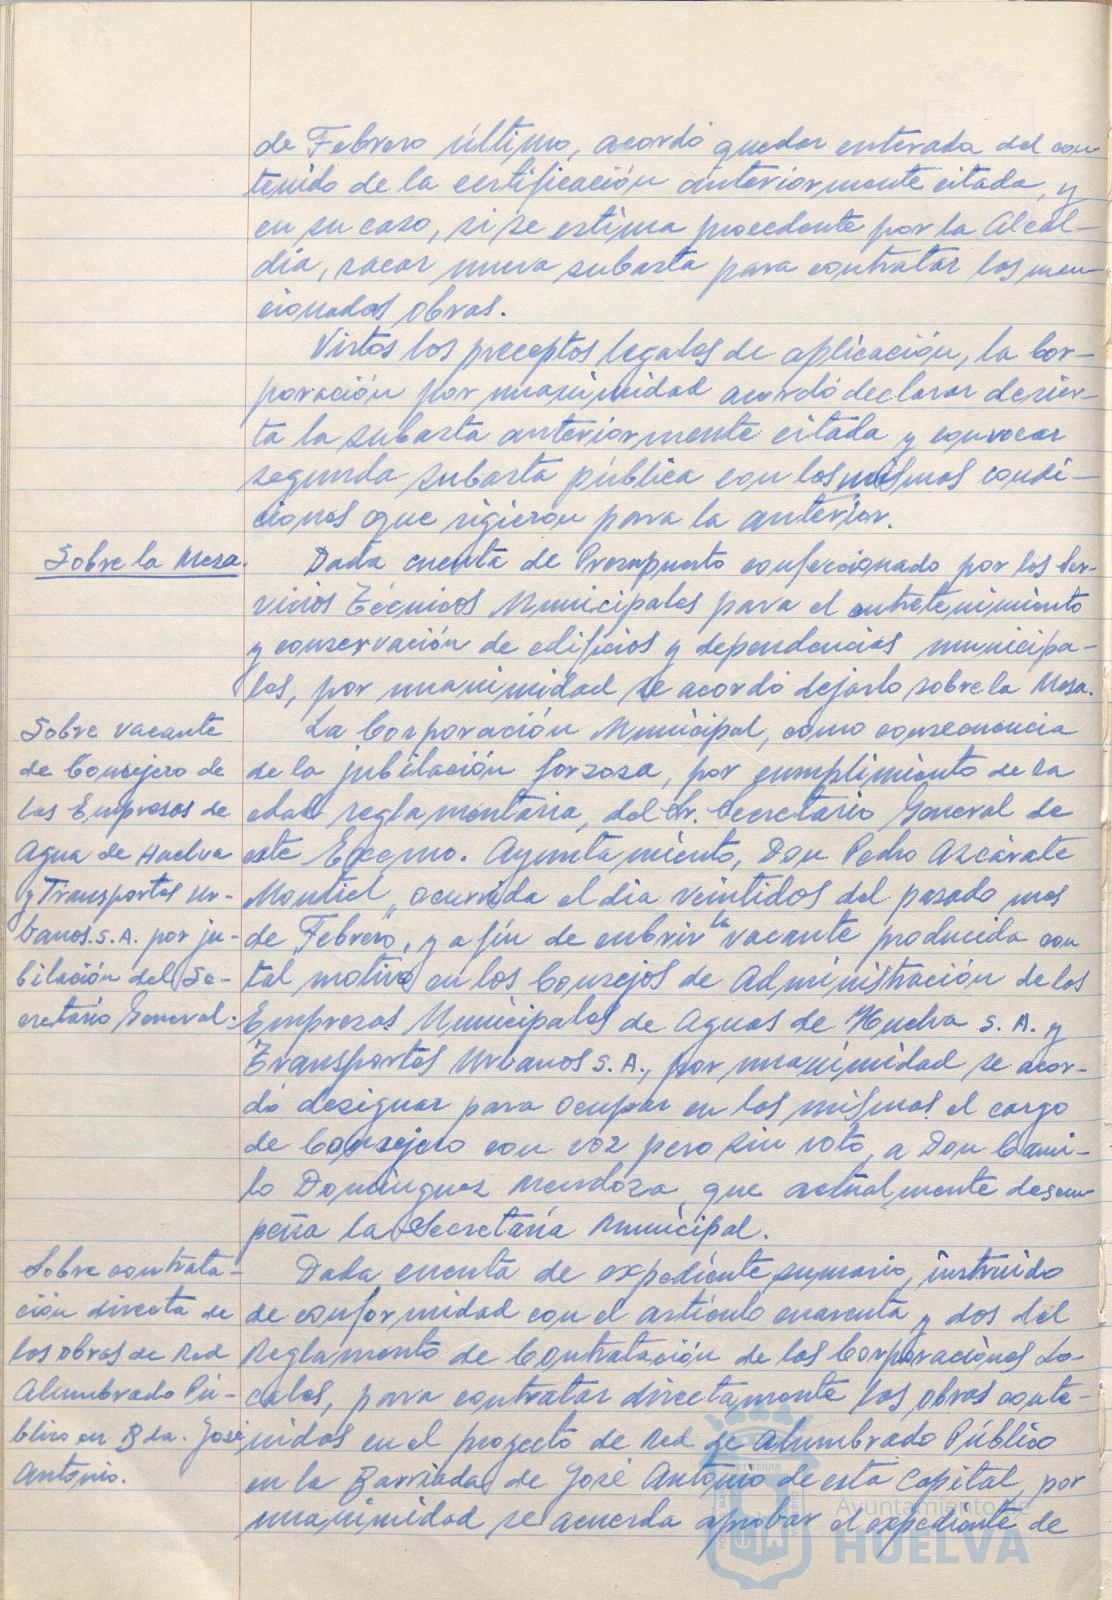 de Febrero último, acordó quedar enterada del con
tenido de la certificación anteriormente citada, y
en su caso, si se estima procedente por la Alcal-
día, sacar nueva subasta para contratar las men-
cionadas obras.
Vistos los preceptos legales de aplicación, la Cor-
poración por unanimidad acordó declarar desier-
ta la subasta anteriormente citada y convocar
segunda subasta pública con las mismas condi-
ciones que rigieron para la anterior.
Sobre la Mesa.
Dada cuenta de Presupuesto confeccionado por los Ser-
vicios Técnicos Municipales para el entretenimiento
y conservación de edificios y dependencias municipa-
les, por unanimidad se acordó dejarlo sobre la Mesa.
Sobre vacante
de Consejero de
las Empresas de
Agua de Huelva
y Transportes Ur-
banos. S.A. por ju-
bilación del Se-
cretario General.
La Corporación Municipal, como consecuencia
de la jubilación forzosa, por cumplimiento de la
edad reglamentaria, del Sr. Secretario General de
este Excmo. Ayuntamiento, Don Pedro Azcárate
Montiel, ocurrida el dia veintidos del pasado mes
de Febrero, y a fín de cubrir la vacante producida con
tal motivo en los Consejos de Administración de las
Empresas Municipales de Aguas de Huelva S. A. y
Transportes Urbanos S. A., por unanimidad se acor-
dó designar para ocupar en las mismas el cargo
de Consejero con voz pero sin voto, a Don Cami-
lo Domínguez Mendoza, que actualmente desem-
peña la Secretaría Municipal.
Sobre contrata-
ción directa de
las obras de Red
Alumbrado Pú-
blico en Bda. José
Antonio.
Dada cuenta de expediente sumario, instruido
de conformidad con el artículo cuarenta y dos del
Reglamento de Contratación de las Corporaciones Lo-
cales, para contratar directamente las obras conte-
nidas en el proyecto de Red de Alumbrado Público
en la Barriada de José Antonio de esta Capital, por
unanimidad se acuerda aprobar el expediente de
Ayuntamiento de
HUELVA